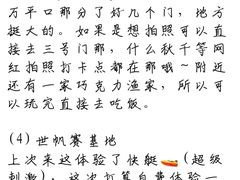 万平口那分了好几个门，地方
挺大的。如果是想拍照可以直
接去三号门那，什么秋千等网
红拍照打卡点都在那哦~附近
还有一家巧克力渔家，所以可
以玩完直接去吃饭。
(4)世帆赛基地
上次来这体验了快艇🚤(超级
刺激)，这次打算自费体验一